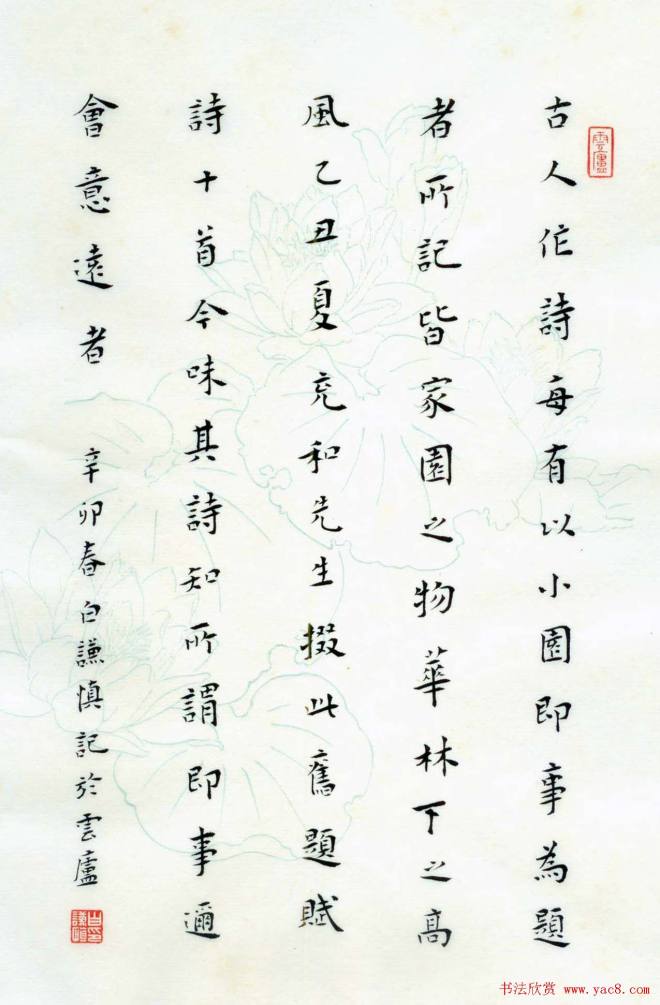 古人作詩每有以小園即事為題
者所記皆家園之物華林下之高
風乙丑夏充和先生掇此舊題賦
詩十首今味其詩知所謂即事邇
會意遠者
辛卯春白謙慎記於雲廬
雲廬
白謙慎印
书法欣赏 www.yac8.com